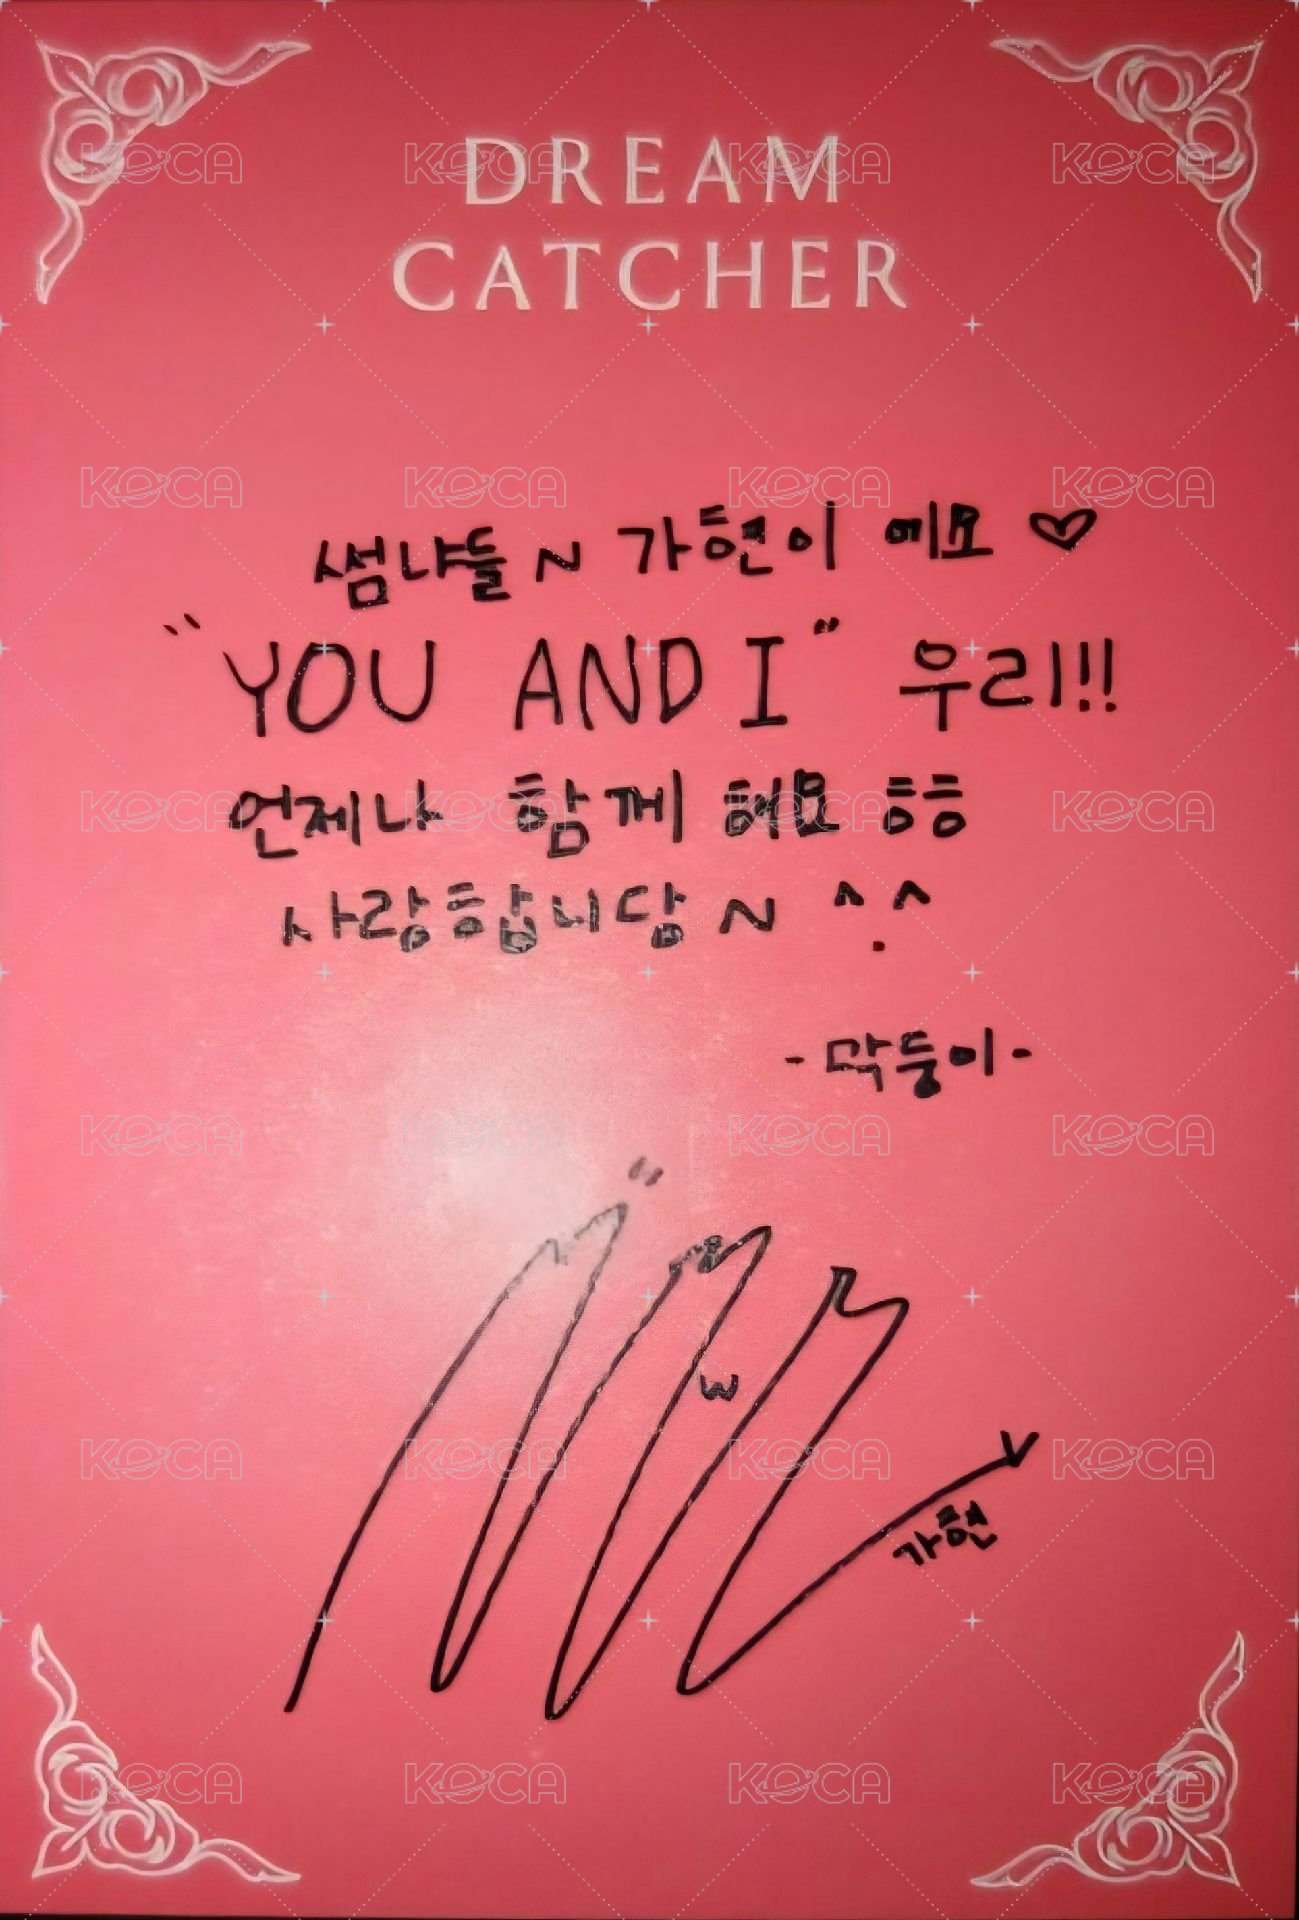 DREAM
CATCHER
썸냐들~ 가현이 예요 ♡
"YOU AND I" 우리!!
언제나 함께 해요 ㅎㅎ
사랑합니답~ ^.^
-막둥이-
가현
KOCA